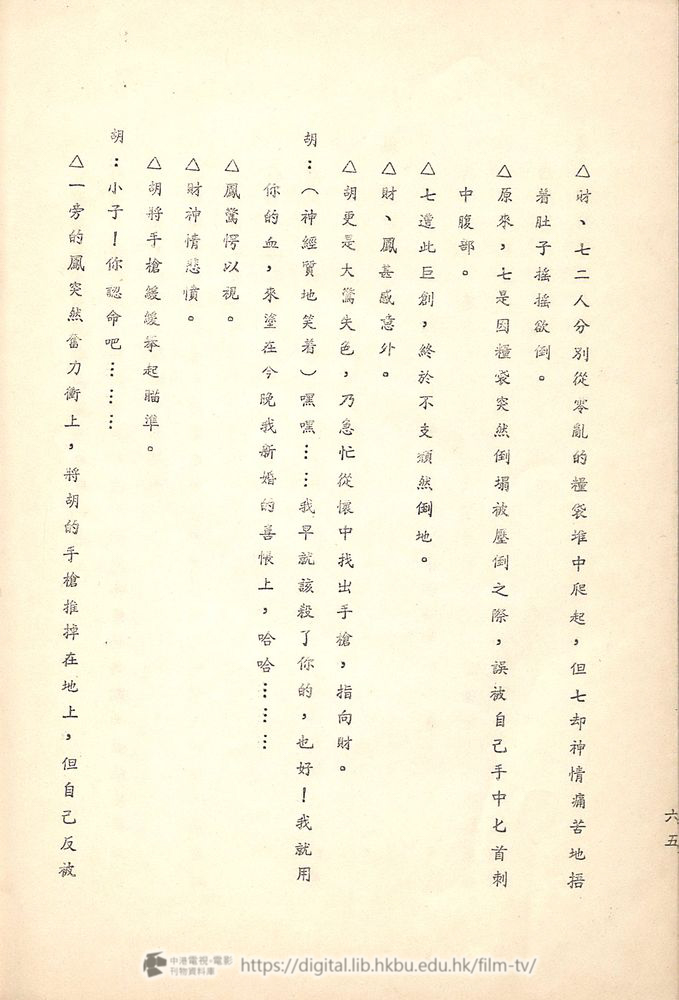 △財、七二人分別從零亂的糧袋堆中爬起，但七却神情痛苦地捂
着肚子搖搖欲倒。
△原來，七是因糧袋突然倒塌被壓倒之際，誤被自己手中匕首刺
中腹部。
△七遭此巨創，終於不支頹然倒地。
△財、鳳甚感意外。
△胡更是大驚失色，乃急忙從懷中找出手槍，指向財。
胡：（神經質地笑着）嘿嘿……我早就該殺了你的，也好！我就用
你的血，來塗在今晚我新婚的喜帳上，哈哈………
△鳳驚愕以視。
△財神情悲憤。
△胡將手槍緩緩舉起瞄準。
胡：小子！你認命吧………
△一旁的鳳突然奮力衝上，將胡的手槍推掉在地上，但自己反被
六五
中港電視·電影
刊物資料庫
https://digital.lib.hkbu.edu.hk/film-tv/